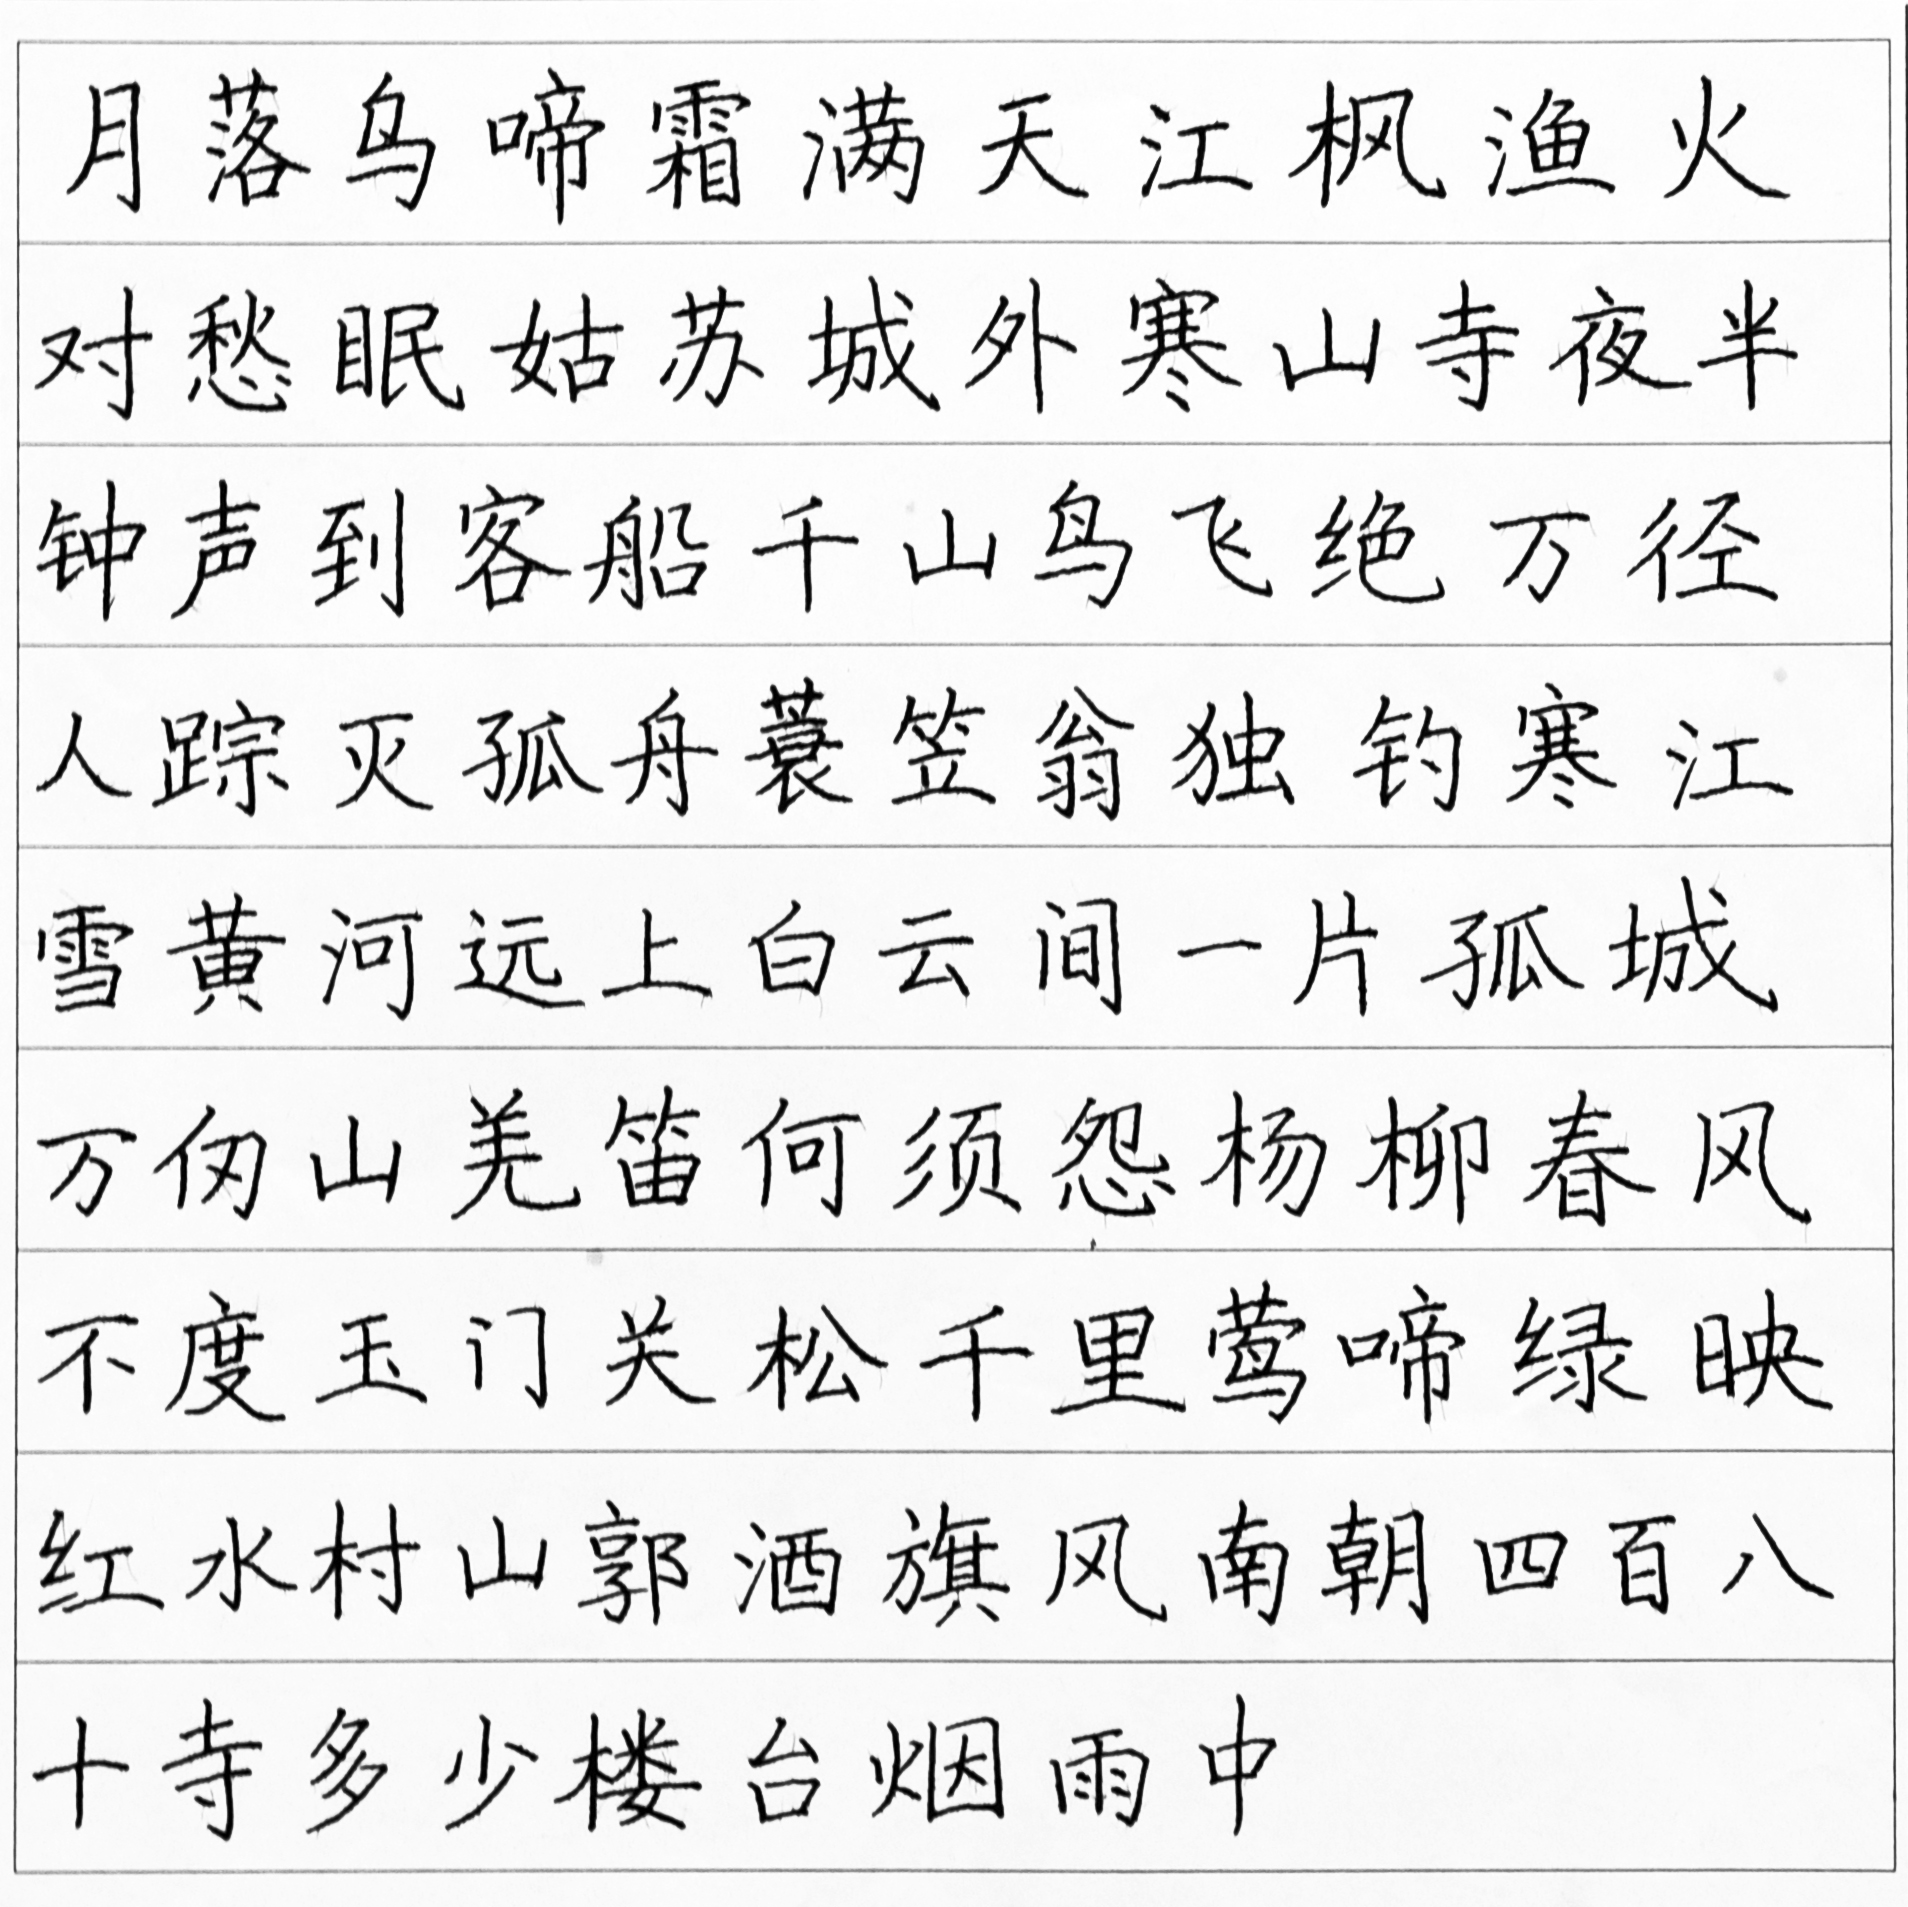 月落乌啼霜满天江枫渔火
对愁眠姑苏城外寒山寺夜半
钟声到客船千山鸟飞绝万径
人踪灭孤舟蓑笠翁独钓寒江
雪黄河远上白云间一片孤城
万仞山羌笛何须怨杨柳春风
不度玉门关松千里莺啼绿映
红水村山郭酒旗风南朝四百八
十寺多少楼台烟雨中